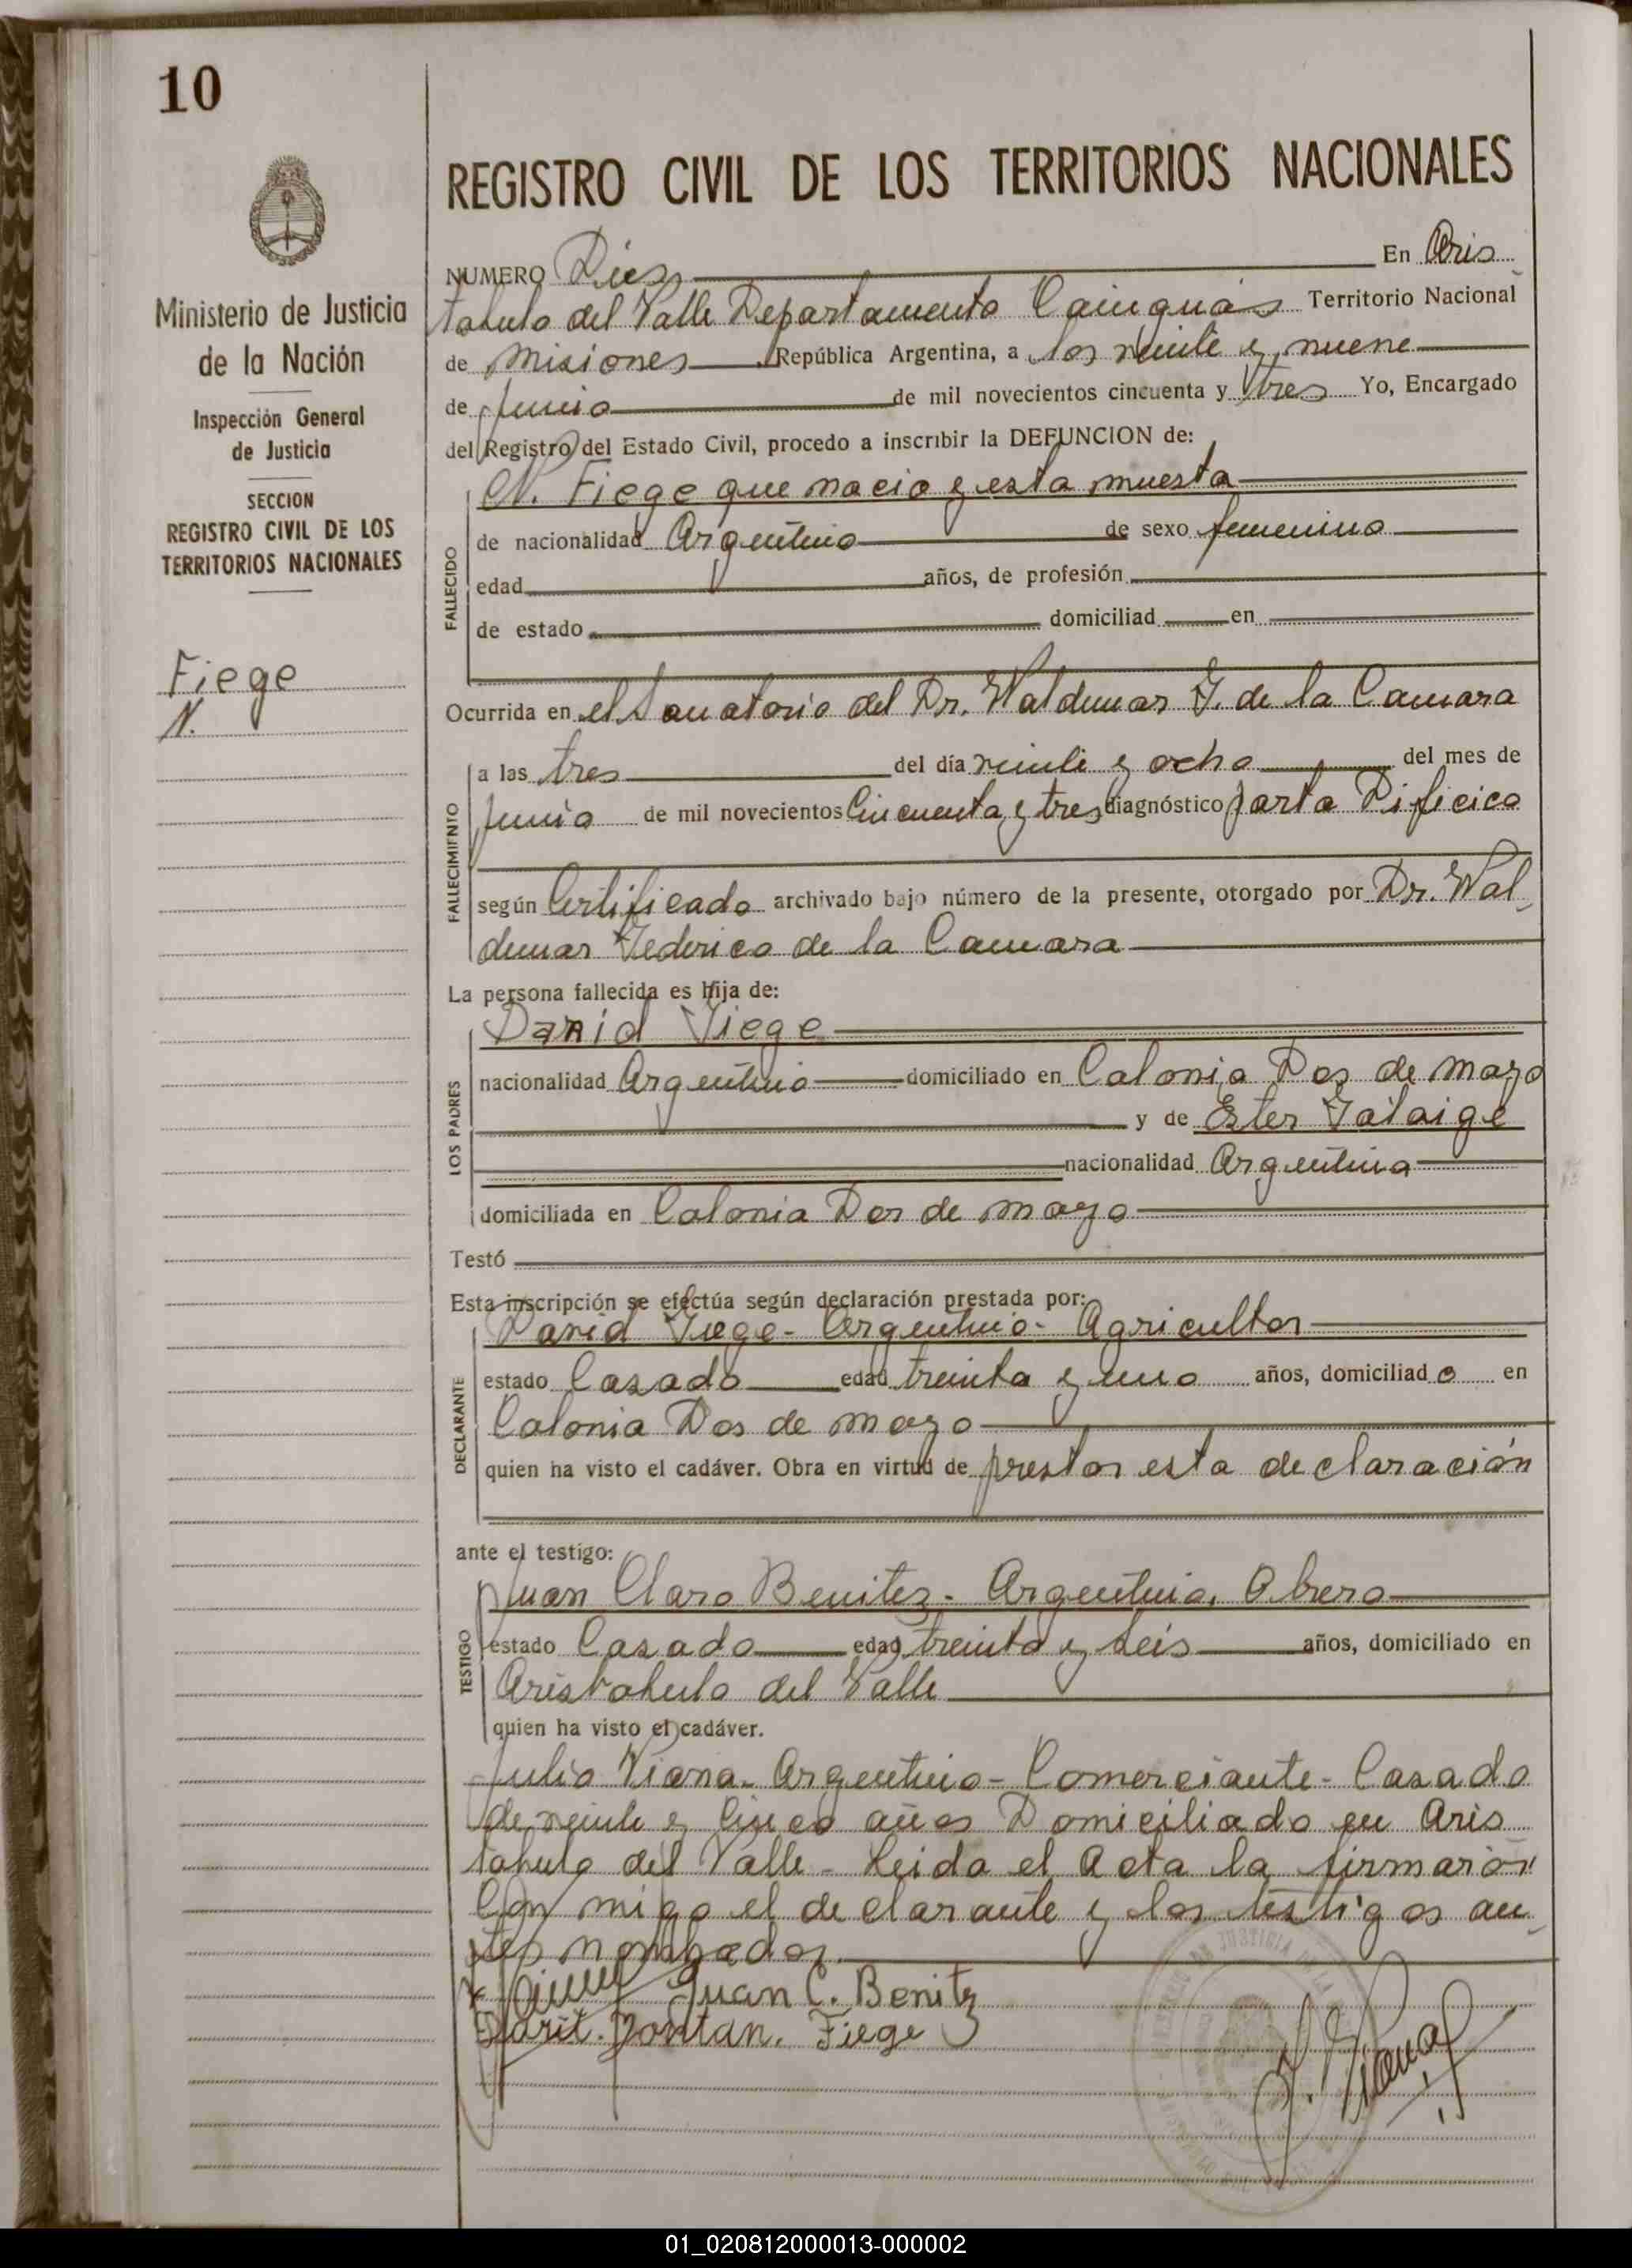 10
REGISTRO CIVIL DE LOS TERRITORIOS NACIONALES
Ministerio de Justicia
de la Nación
Inspección General
de Justicia
SECCION
REGISTRO CIVIL DE LOS
TERRITORIOS NACIONALES
Fiege
N.
NUMERO Diez En Aris
tobulo del Valle Departamento Cainguás Territorio Nacional
de Misiones República Argentina, a los veinte y nueve
de Junio de mil novecientos cincuenta y tres Yo, Encargado
del Registro del Estado Civil, procedo a inscribir la DEFUNCION de:
N. Fiege que nacio y esta muerta
FALLECIDO
de nacionalidad Argentina de sexo femenino
edad años, de profesión
de estado domiciliad en
Ocurrida en el Sanatorio del Dr. Waldemar F. de la Camara
FALLECIMIENTO
a las tres del día veinte y ocho del mes de
Junio de mil novecientos Cincuenta y tres diagnóstico parto Dificico
según Certificado archivado bajo número de la presente, otorgado por Dr. Wal-
demar Federico de la Camara
La persona fallecida es hija de:
LOS PADRES
David Fiege
nacionalidad Argentino domiciliado en Colonia Dos de mayo
y de Ester
nacionalidad Argentina
domiciliada en Colonia Dos de mayo
Testó
Esta inscripción se efectúa según declaración prestada por:
DECLARANTE
David Fiege - Argentino - Agricultor
estado Casado edad treinta y uno años, domiciliad o en
Colonia Dos de mayo
quien ha visto el cadáver. Obra en virtud de prestar esta declaración
ante el testigo:
TESTIGO
Juan Claro Benitez - Argentino, Obrero
estado Casado edad treinta y seis años, domiciliado en
Aristobulo del Valle
quien ha visto el cadáver.
Julio Viana - Argentino - Comerciante - Casado
de veinte y Cinco años Domiciliado en Aris
tobulo del Valle - Leida el Acta la firmarón
Con migo el declarante y los testigos an-
tes nombrados
Juan C. Benitez
Fiege
J. Viana
01_020812000013-000002